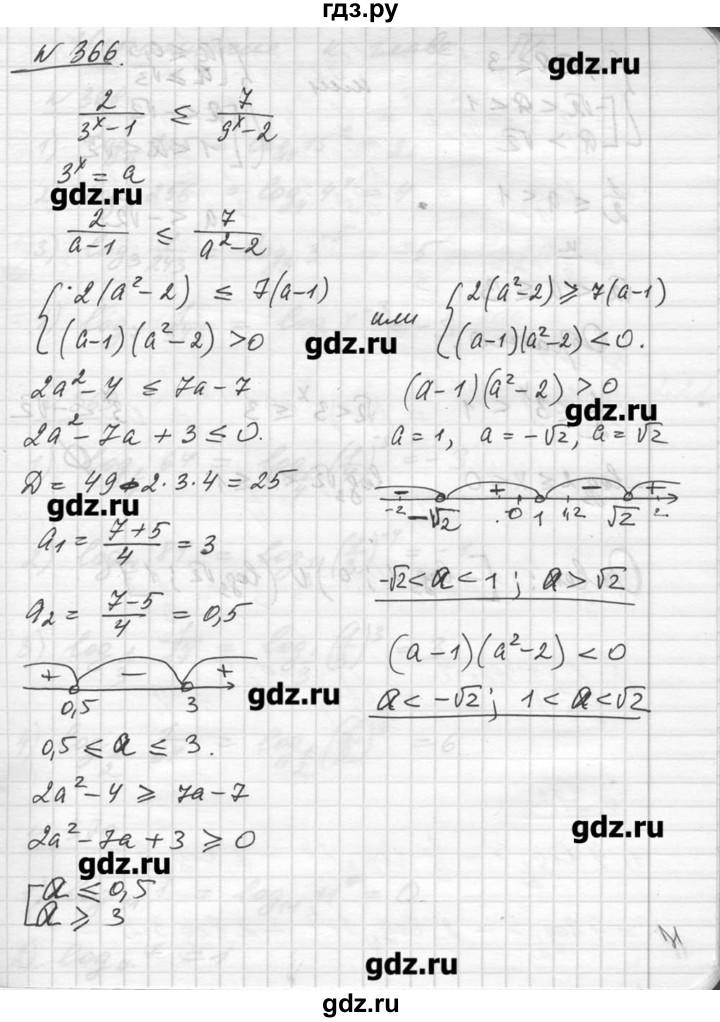 гдз.ру
N 366.
gdz.ru
2/(3^x-1) ≤ 7/(9^x-2)
3^x = a
gdz.ru
2/(a-1) ≤ 7/(a²-2)
{ 2(a²-2) ≤ 7(a-1)
(a-1)(a²-2) >0
или
{ 2(a²-2) ≥ 7(a-1)
(a-1)(a²-2) < 0.
gdz.ru
2a²-4 ≤ 7a-7
2a²-7a+3 ≤ 0.
Д = 49-2·3·4 = 25
gdz.ru
a₁ = (7+5)/4 = 3
a₂ = (7-5)/4 = 0,5
+ - +
0,5 3
gdz.ru
0,5 ≤ a ≤ 3.
2a²-4 ≥ 7a-7
2a²-7a+3 ≥ 0
gdz.ru
[ a ≤ 0,5
a ≥ 3
(a-1)(a²-2) >0
gdz.ru
a=1, a=-√2, a=√2
- + - +
-2 -√2 0 1 1,2 √2 2
-√2 < a < 1 ; a > √2
(a-1)(a²-2) < 0
a < -√2 ; 1 < a < √2
gdz.ru
gdz.ru
gdz.ru